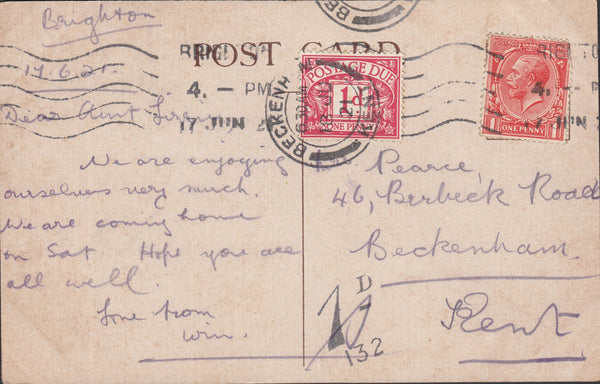 Brighton
17.6.21.
POST CARD
BRIGHTON
4. - PM
17 JUN
POSTAGE DUE
1d
ONE PENNY
BECKENHAM
KENT
ONE PENNY
4. - P
17 JUN
Dear Aunt
We are enjoying
ourselves very much.
We are coming home
on Sat Hope you are
all well.
Love from
Win.
Pearce,
46, Berbeck Road
Beckenham.
Kent
1D
132